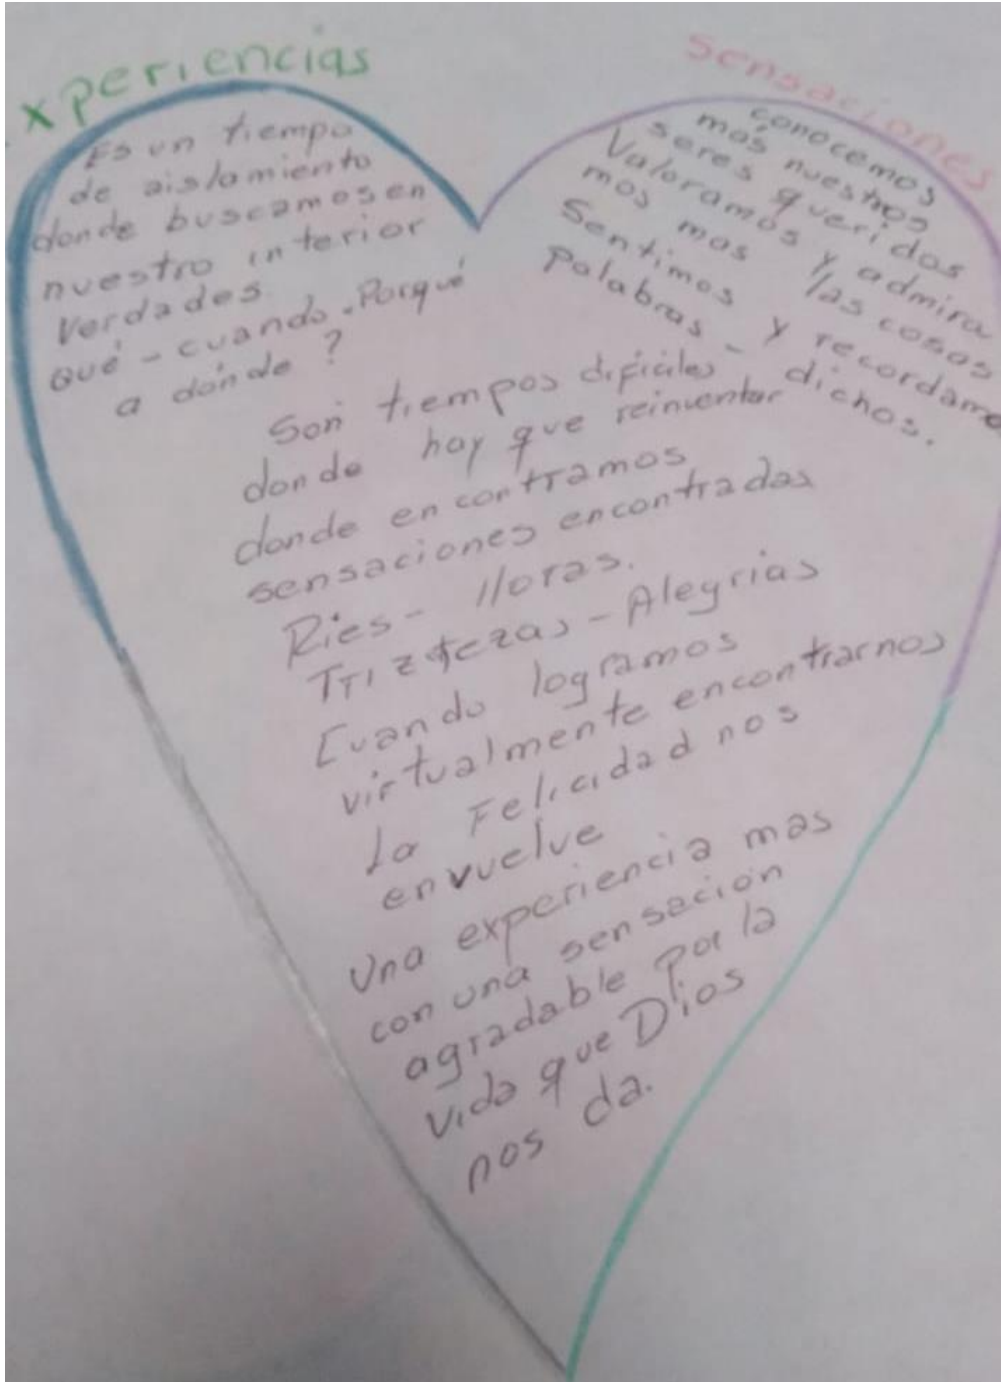 xperiencias
Es un tiempo
de aislamiento
donde buscamos en
nuestro interior
verdades.
qué - cuando. Porqué
a dónde ?
sensaciones
conocemos
más nuestros
seres queridos
Valoramos y admira
mos mas las cosas
Sentimos y recordamo
Palabras - dichos.
Son tiempos dificiles
donde hay que reinventar
donde encontramos
sensaciones encontradas
Ries - lloras.
Triztezas - Alegrias
Cuando logramos
virtualmente encontrarnos
la Felicidad nos
envuelve
Una experiencia mas
con una sensación
agradable por la
vida que Dios
nos da.